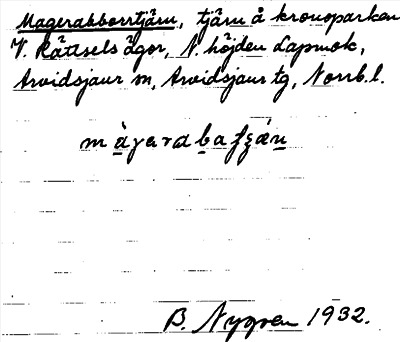 Magerabborrtjärn, tjärn å kronoparken
V. Rättsels ägor, N. höjden Lapmok,
Arvidsjaur sn, Arvidsjaurs tg, Norrb. l.
B. Nygren 1932.